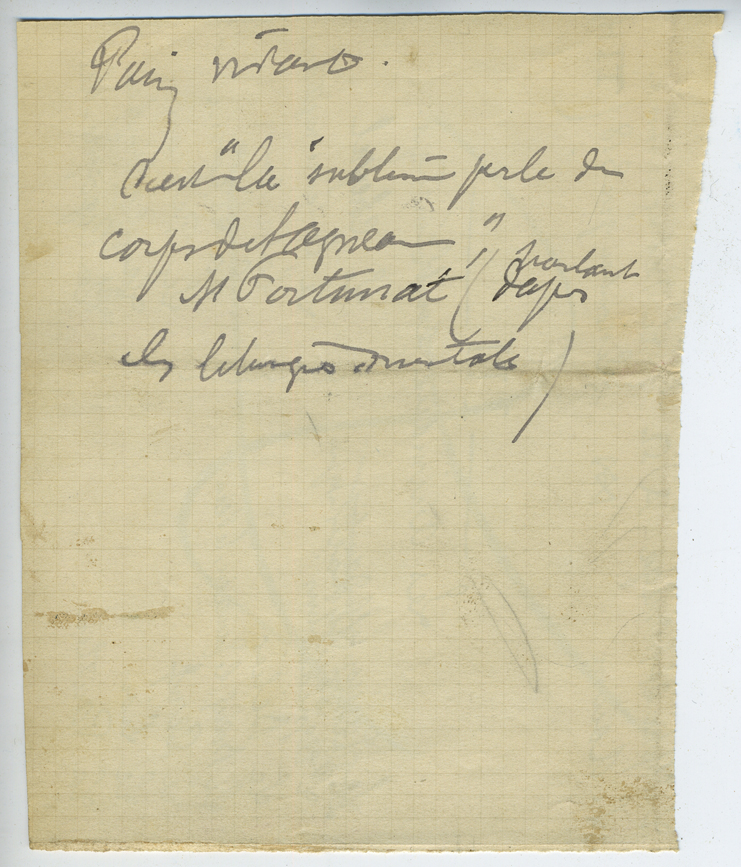 Pain vivant.
c'est "la "sublime perle du
corps de l'agneau"
M Fortunat" (parlant
d'après
les liturgies orientales)